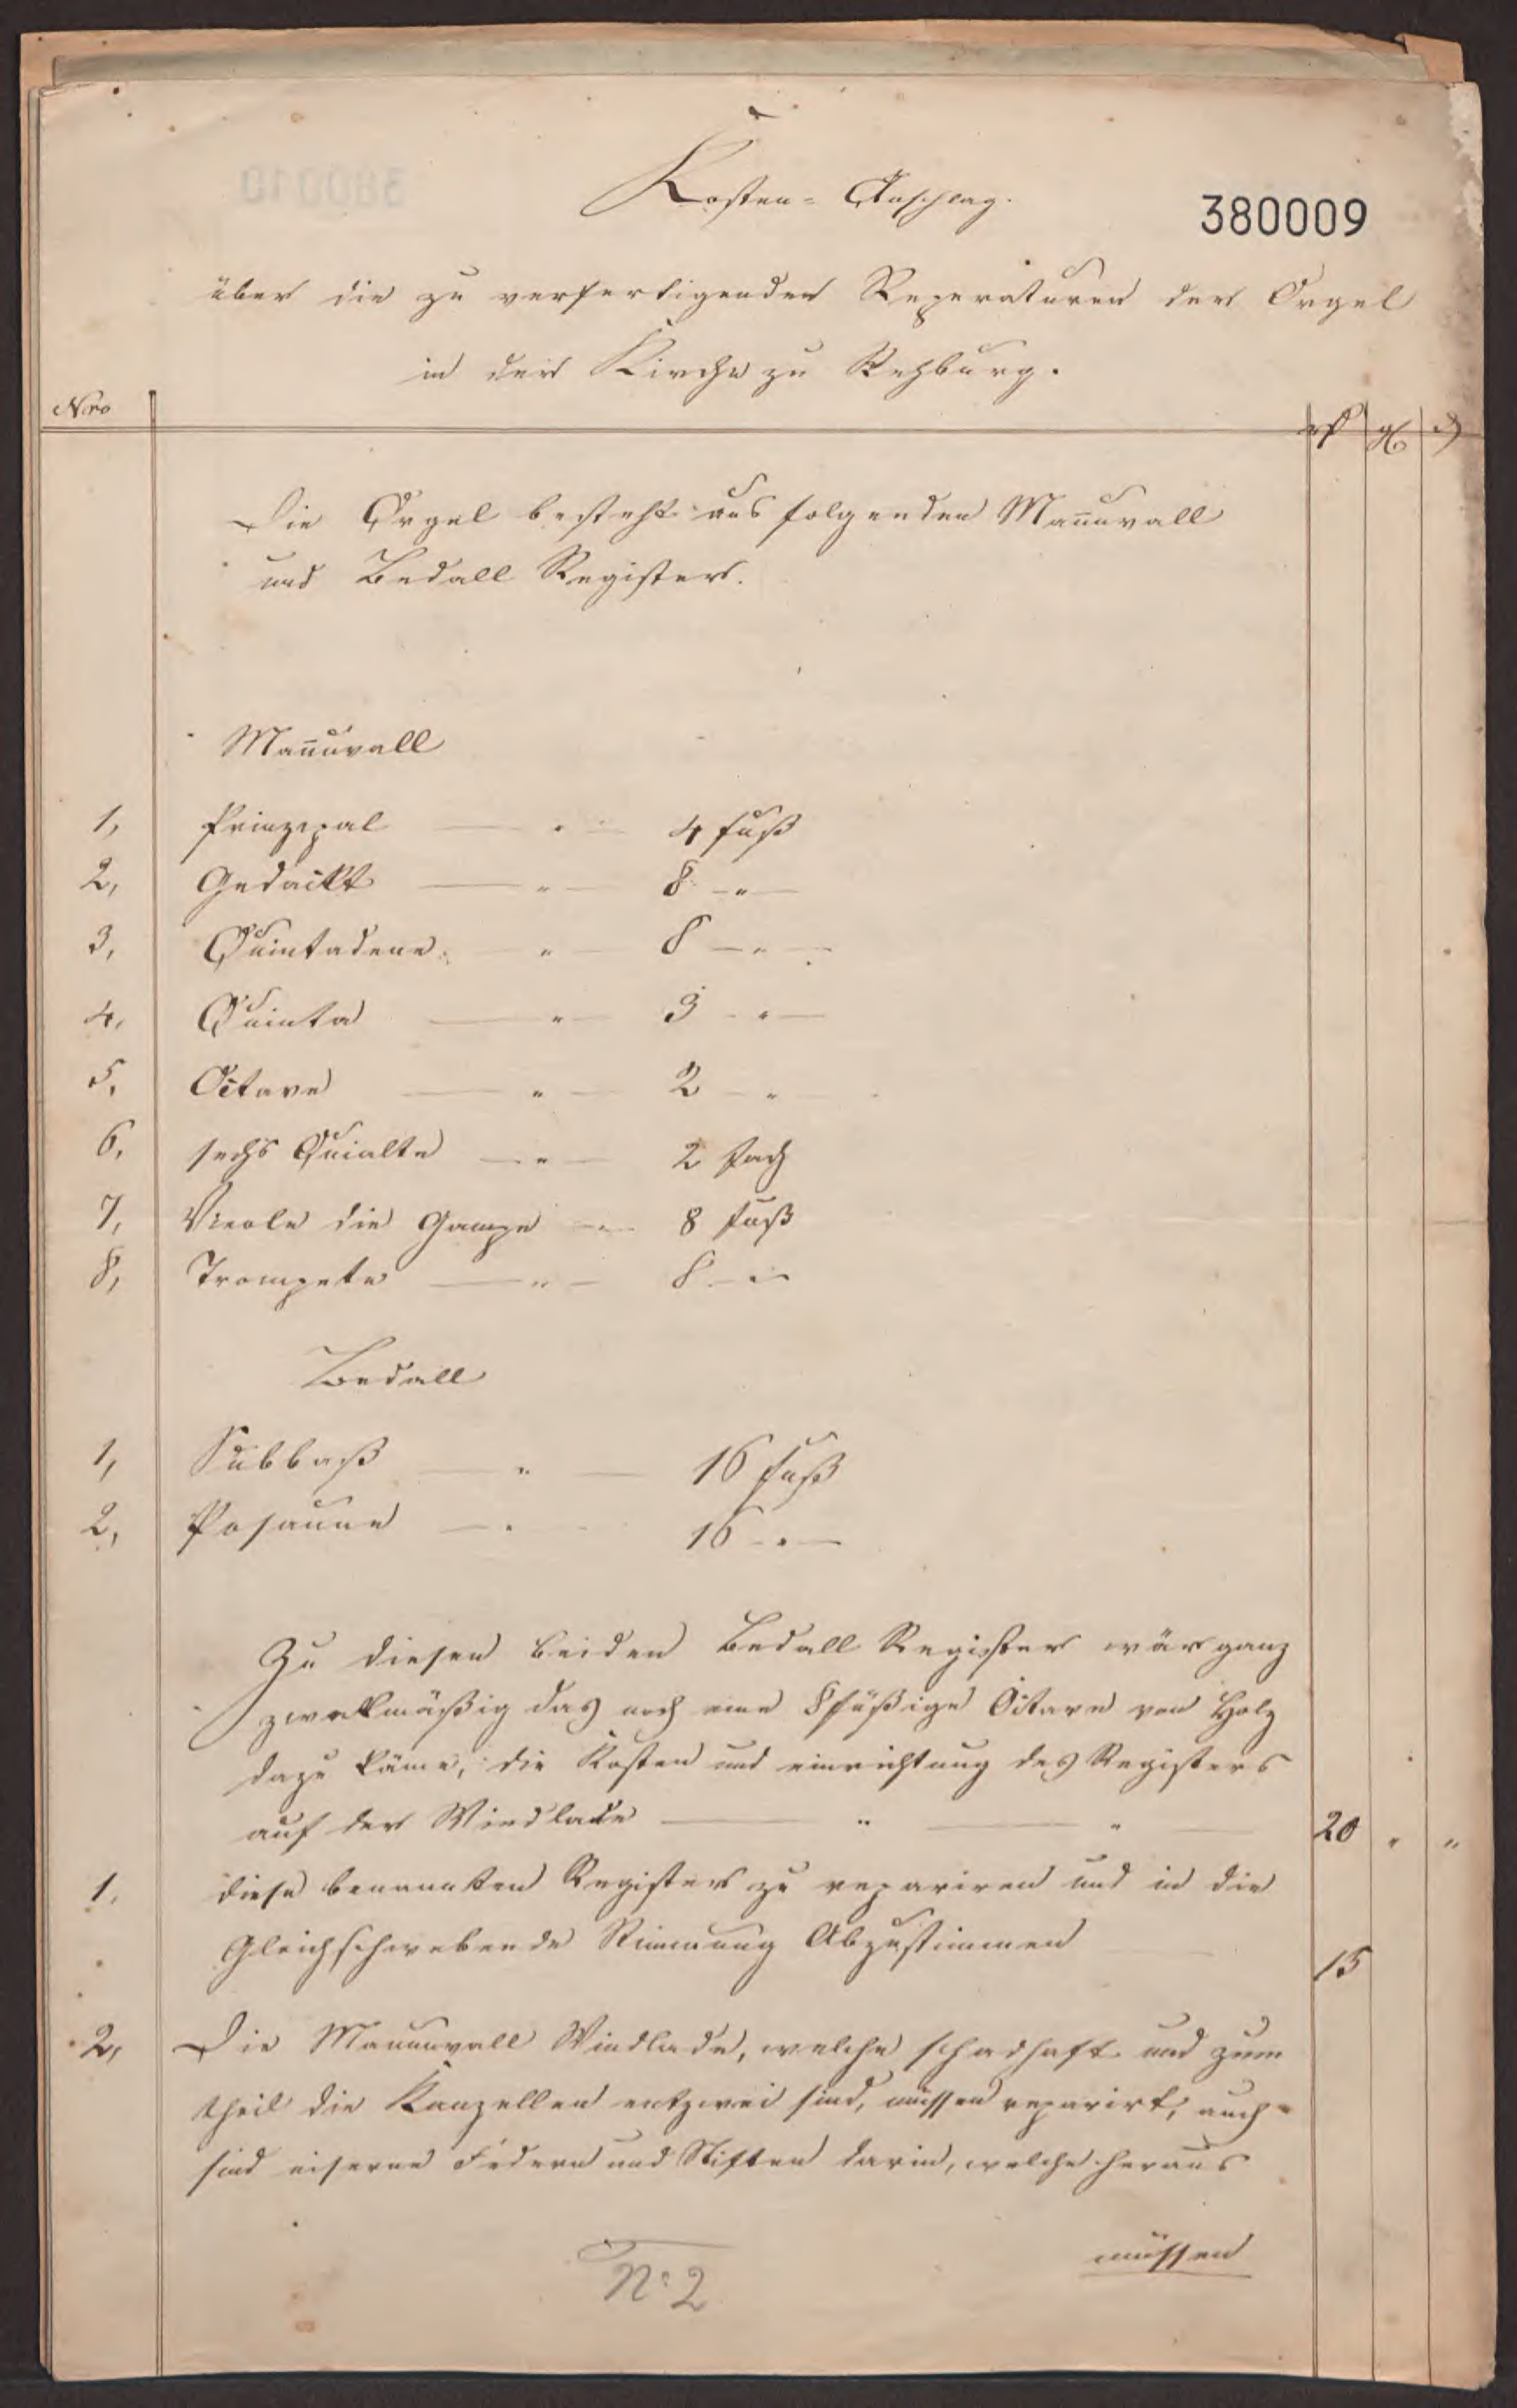 Kosten-Anschlag.
380009
über die zu verfertigenden Reperaturen der Orgel
in der Kirche zu Rehburg.
Nro
Die Orgel besteht aus folgenden Man̄uvall
und Bedall Register.
Man̄uvall
1, Prinzipal — " — 4 fuß
2, Gedackt — " — 8 — " —
3, Quintadene — " — 8 — " —
4, Quinta — " — 3 — " —
5, Octave — " — 2 — " —
6, sechs Quialte — " — 2 fach
7, Vieole die Gampe — " — 8 fuß
8, Trompete — " — 8 — " —
Bedall
1, Subbaß — " — 16 fuß
2, Posaune — " — 16 — " —
Zu diesen beiden Bedall Register wär ganz
zwekmäßig das noch eine 8füßige Octave von Holz
dazu käme, die Kosten und einrichtung des Registers
auf der Windlade — " — " — 20 " "
1. diese benannten Register zu repariren und in die
Gleichschwebende Stimmung Abzustimmen 15
2, Die Manuvall Windlade, welche schadhaft und zum
theil die Kanzellen entzwei sind, müssen reparirt, auch
sind eiserne Federn und Stiften darin, welche heraus
müssen
No 2